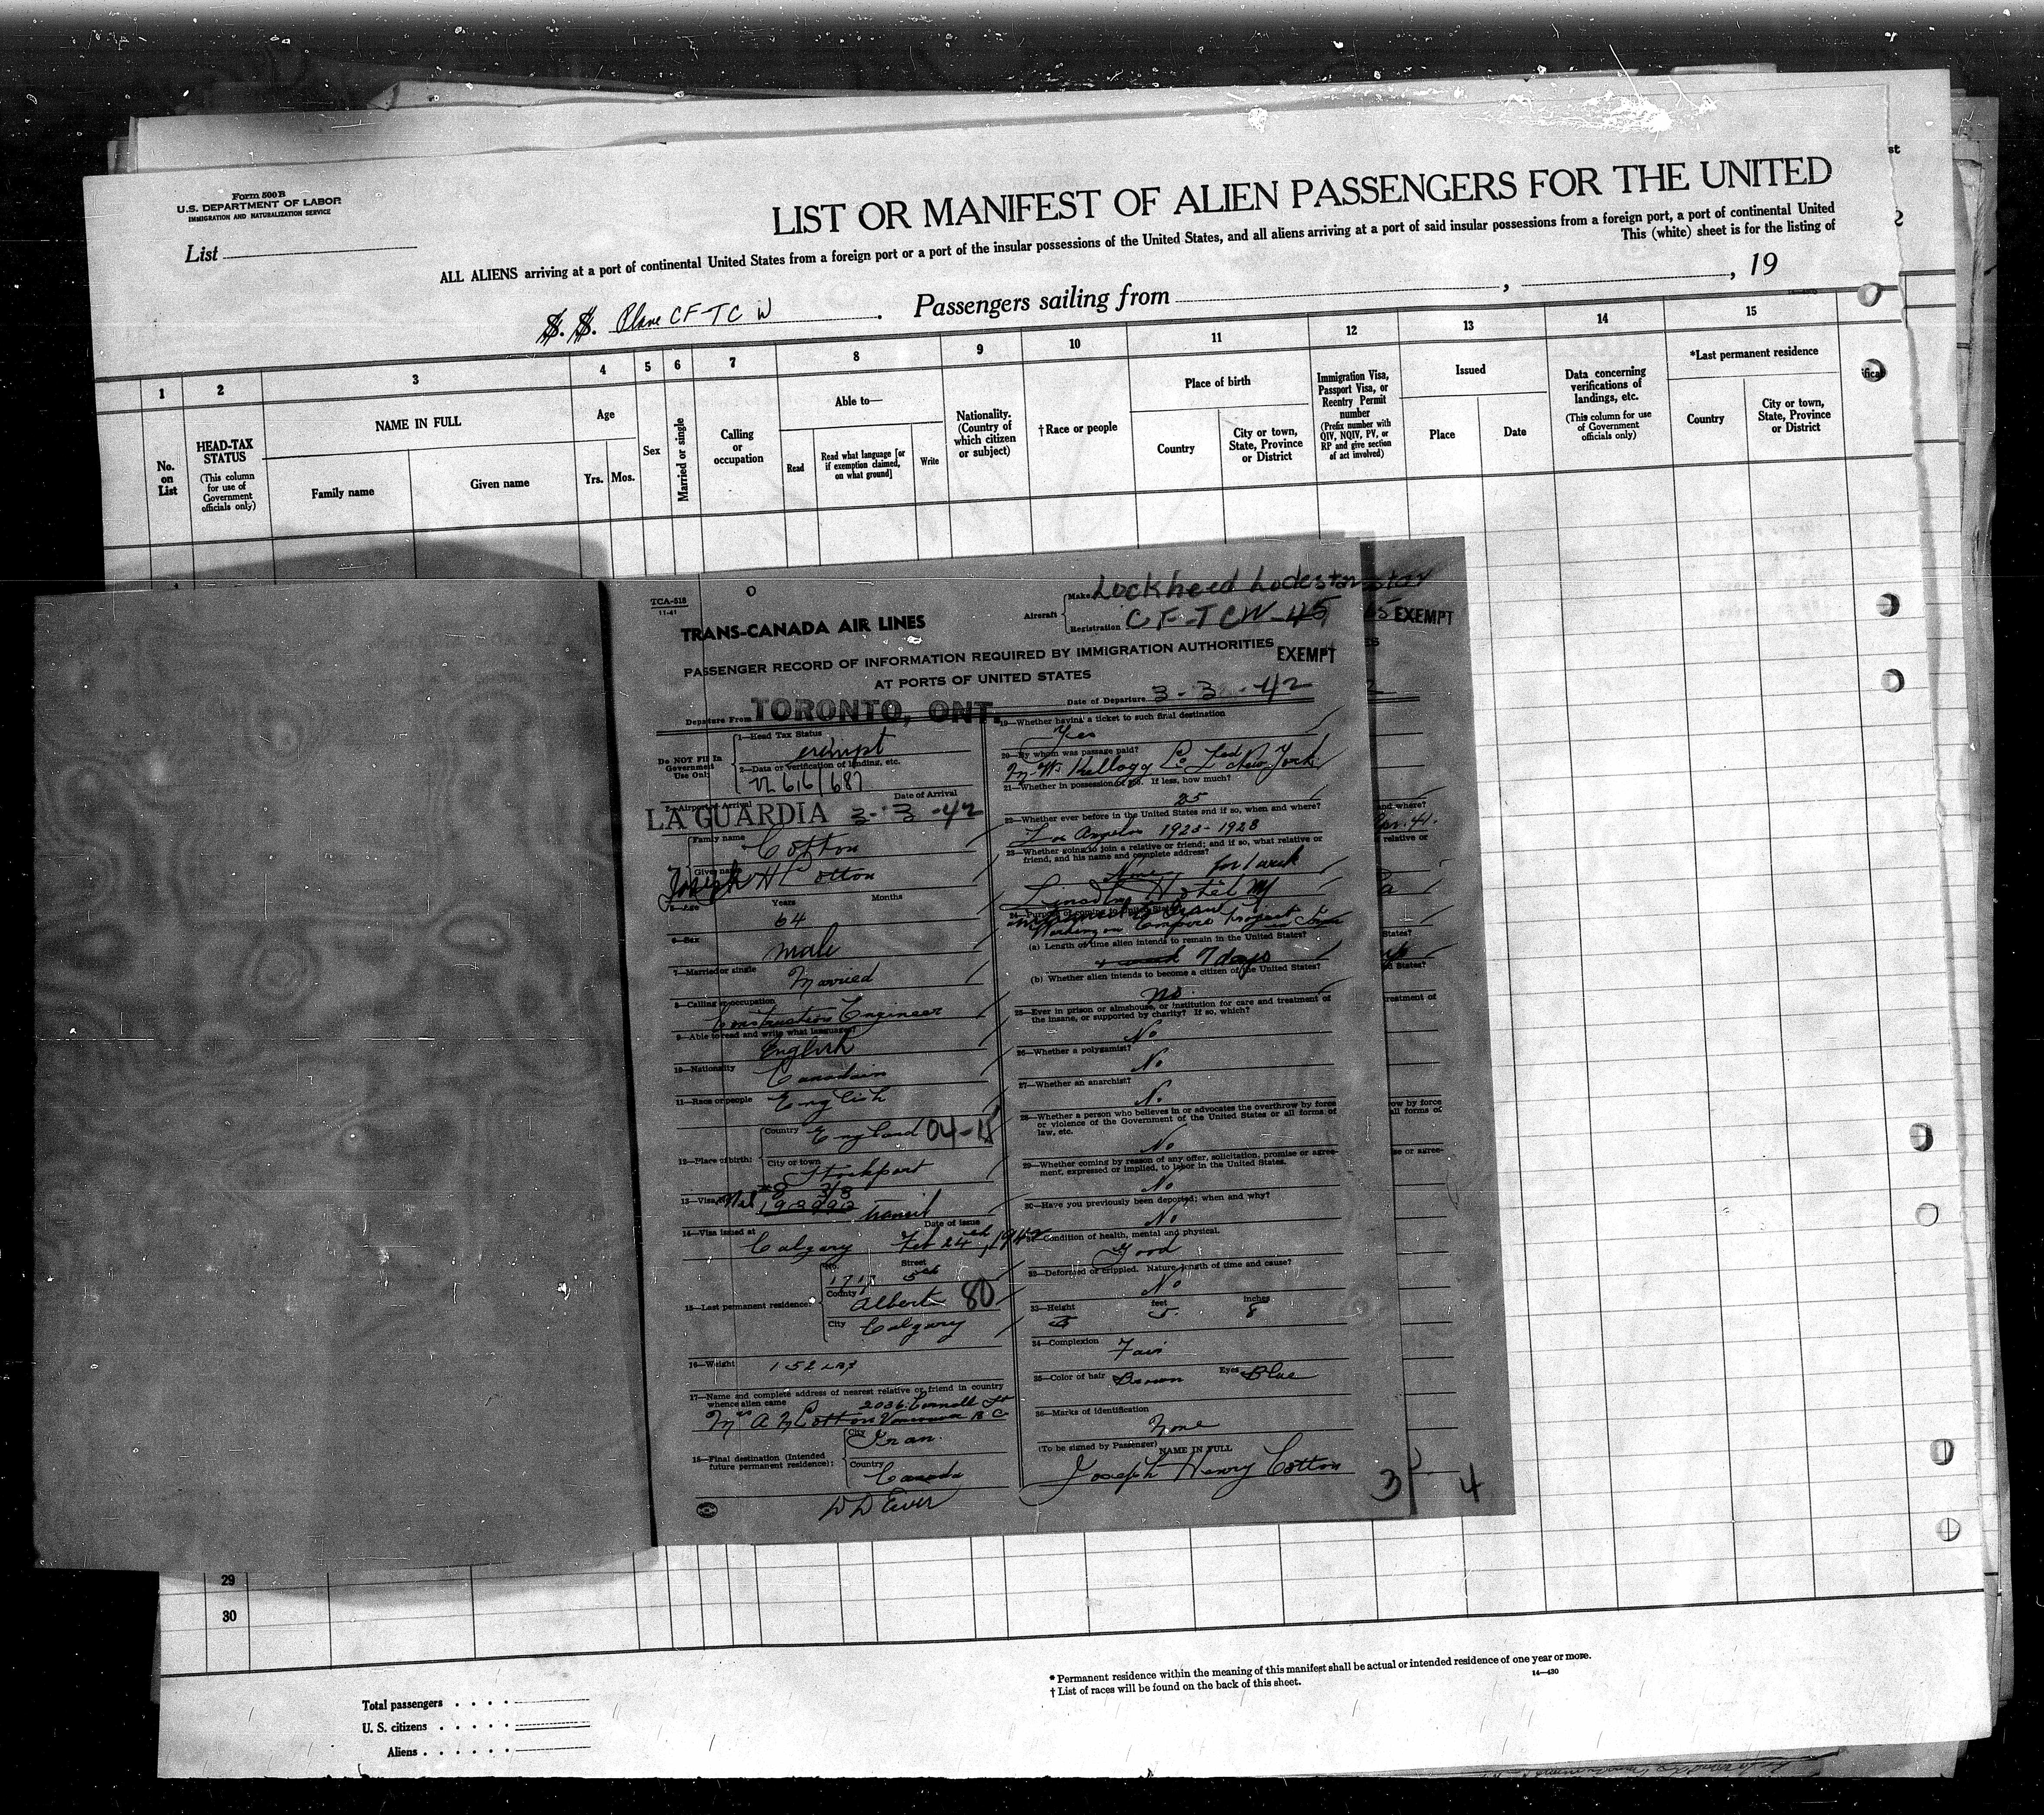 Form 500B
U.S. DEPARTMENT OF LABOR
IMMIGRATION AND NATURALIZATION SERVICE
List
LIST OR MANIFEST OF ALIEN PASSENGERS FOR THE UNITED
ALL ALIENS arriving at a port of continental United States from a foreign port or a port of the insular possessions of the United States, and all aliens arriving at a port of said insular possessions from a foreign port, a port of continental United
This (white) sheet is for the listing of
S. S. Plane CF-TCW. Passengers sailing from , , 19
1 2 3 4 5 6 7 8 9 10 11 12 13 14 15
No. on List
HEAD-TAX STATUS
(This column for use of Government officials only)
NAME IN FULL
Family name
Given name
Age
Yrs. Mos.
Sex
Married or single
Calling or occupation
Able to—
Read
Read what language [or if exemption claimed, on what ground]
Write
Nationality. (Country of which citizen or subject)
†Race or people
Place of birth
Country
City or town, State, Province or District
Immigration Visa, Passport Visa, or Reentry Permit number
(Prefix number with QIV, NQIV, PV, or RP and give section of act involved)
Issued
Place
Date
Data concerning verifications of landings, etc.
(This column for use of Government officials only)
*Last permanent residence
Country
City or town, State, Province or District
TCA-518
11-41
TRANS-CANADA AIR LINES
Aircraft
Make Lockheed Lodestar
Registration CF-TCW-45
EXEMPT
PASSENGER RECORD OF INFORMATION REQUIRED BY IMMIGRATION AUTHORITIES
EXEMPT
AT PORTS OF UNITED STATES
Departure From TORONTO, ONT.
Date of Departure 3-3-42
Do NOT Fill In Government Use Only:
1—Head Tax Status
exempt
2—Data or verification of landing, etc.
616/687
Airport of Arrival
Date of Arrival
LA GUARDIA 3-3-42
Family name
Cotton
Given name
Joseph H Cotton
5—Age
Years
Months
64
6—Sex
male
7—Married or single
Married
8—Calling or occupation
Construction Engineer
9—Able to read and write what language?
English
10—Nationality
Canadain
11—Race or people
English
12—Place of birth:
Country England 04-18
City or town
Stockport
13—Visa
transit
14—Visa issued at
Date of issue
Calgary Feb 24th, 1942
15—Last permanent residence:
No.
Street
1717 5th
County
Alberta 80
City Calgary
16—Weight 152 LBS
17—Name and complete address of nearest relative or friend in country whence alien came
2036 Cornwall St
Mrs A M Cotton Vancouver B C
18—Final destination (Intended future permanent residence):
City
Iran
Country
Canada
19—Whether having a ticket to such final destination
Yes
20—By whom was passage paid?
M. W. Kellogg Co Ltd New York
21—Whether in possession of $50. If less, how much?
25
22—Whether ever before in the United States and if so, when and where?
Los Angeles 1923-1928
23—Whether going to join a relative or friend; and if so, what relative or friend, and his name and complete address?
None for 1 week
Lincoln Hotel NY
24—Purpose of coming to United States
Working on Empire Project
(a) Length of time alien intends to remain in the United States?
7 days
(b) Whether alien intends to become a citizen of the United States?
no
25—Ever in prison or almshouse, or institution for care and treatment of the insane, or supported by charity? If so, which?
No
26—Whether a polygamist?
No
27—Whether an anarchist?
No
28—Whether a person who believes in or advocates the overthrow by force or violence of the Government of the United States or all forms of law, etc.
No
29—Whether coming by reason of any offer, solicitation, promise or agreement, expressed or implied, to labor in the United States.
No
30—Have you previously been deported; when and why?
No
31—Condition of health, mental and physical.
Good
32—Deformed or crippled. Nature, length of time and cause?
No
33—Height feet inches
5 8
34—Complexion
Fair
35—Color of hair Brown Eyes Blue
36—Marks of identification
None
(To be signed by Passenger)
NAME IN FULL
Joseph Henry Cotton
3 4
29
30
Total passengers
U. S. citizens
Aliens
* Permanent residence within the meaning of this manifest shall be actual or intended residence of one year or more.
† List of races will be found on the back of this sheet.
14—430